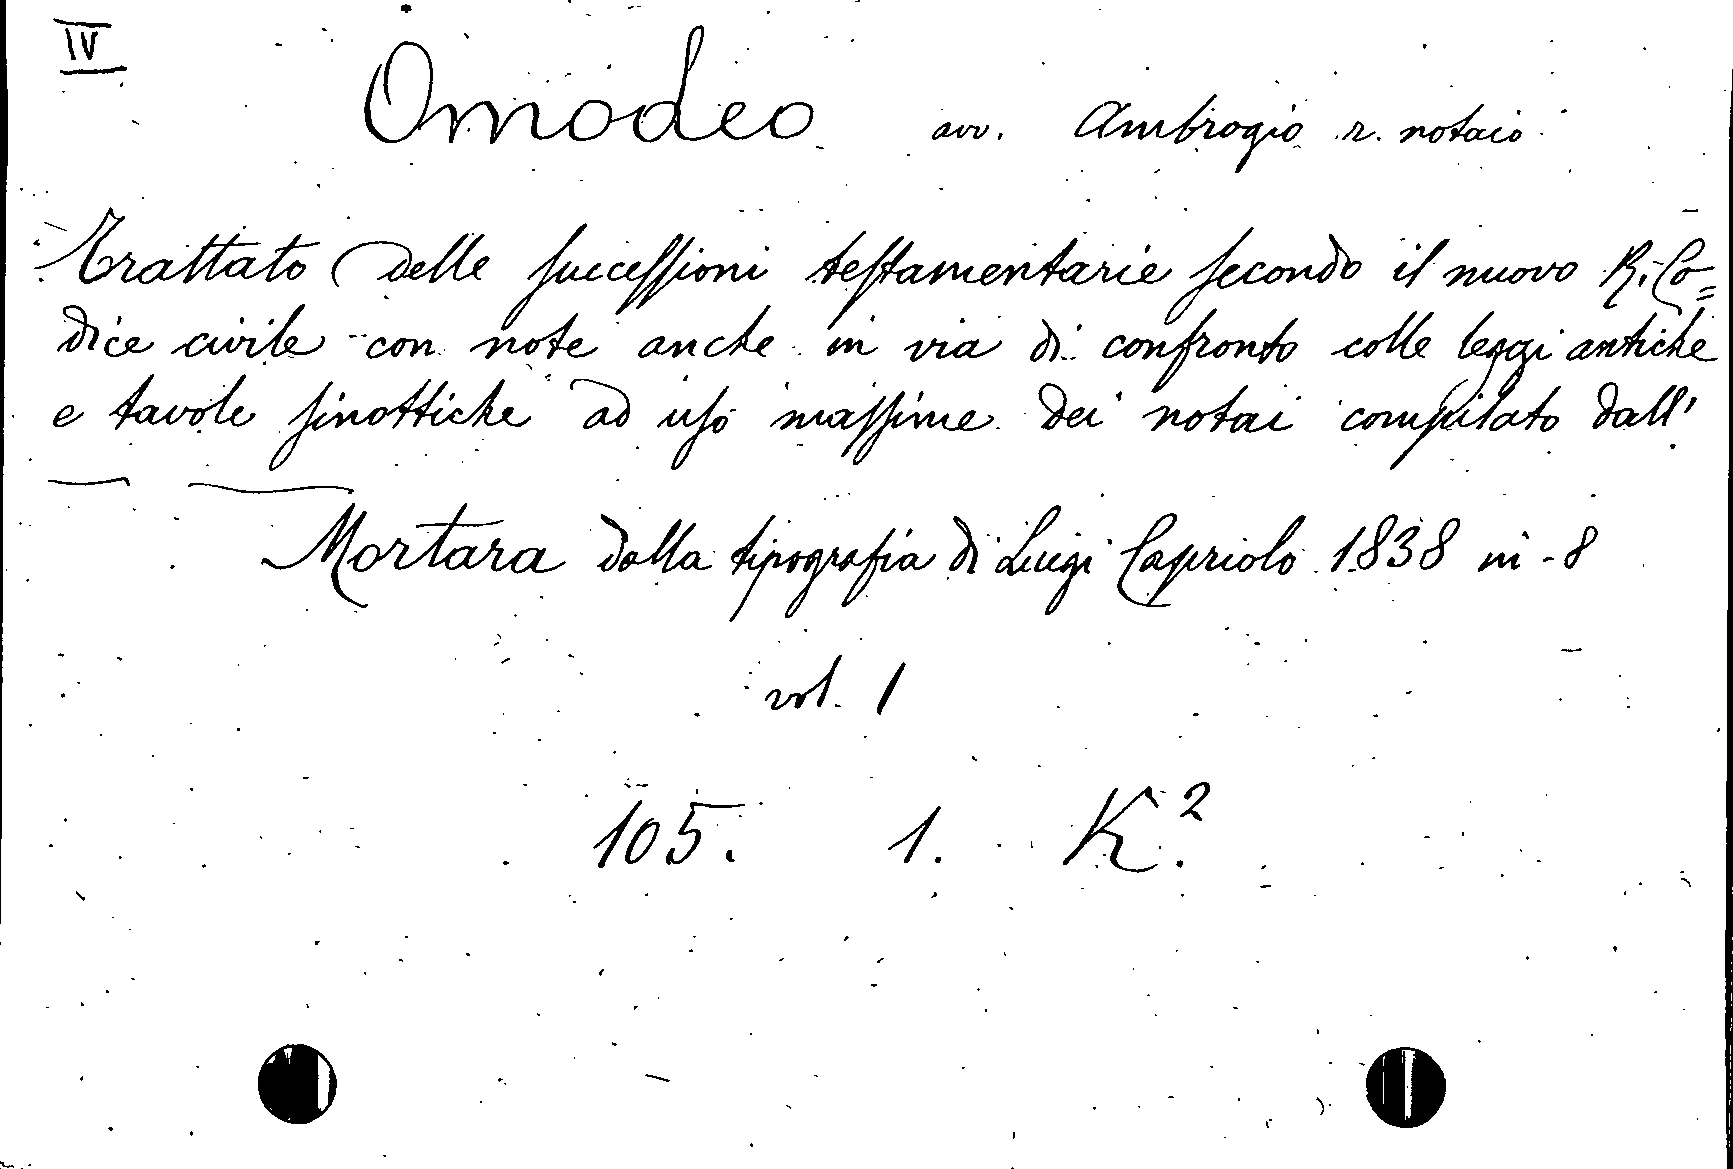 IV
Omodeo avv. Ambrogio r. notaio
Trattato delle successioni testamentarie secondo il nuovo R. Co=
dice civile con note anche in via di confronto colle leggi antiche
e tavole sinottiche ad uso massime dei notai compilato dall'
— —
Mortara dalla tipografia di Luigi Capriolo 1838 in-8
vol. 1
105. 1. K².